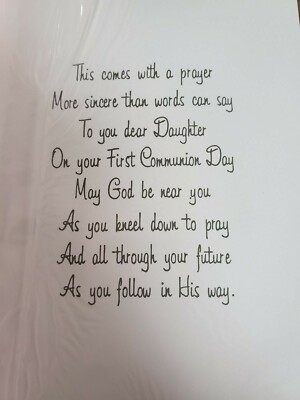 This comes with a prayer
More sincere than words can say
To you dear Daughter
On your First Communion Day
May God be near you
As you kneel down to pray
And all through your future
As you follow in His way.